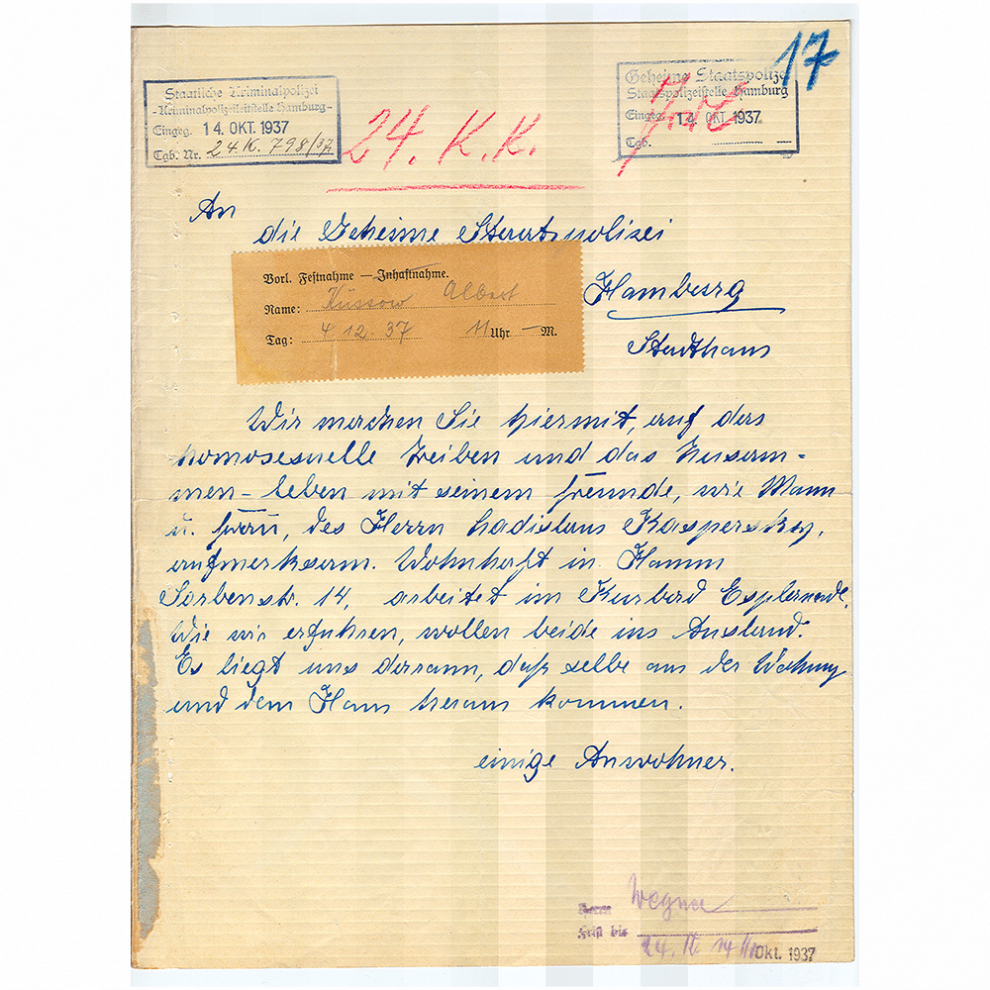 17
Staatliche Kriminalpolizei
-Kriminalpolizeileitstelle Hamburg-
Eingeg. 14. OKT. 1937
Tgb. Nr. 24.K. 798/37
24. K.K.
Geheime Staatspolizei
Staatspolizeistelle Hamburg
Eingeg. 14. OKT. 1937
Tgb.
An
die Geheime Staatspolizei
Hamburg
Stadthaus
Vorl. Festnahme — Inhaftnahme.
Name: Küssow Albert
Tag: 4.12.37 11 Uhr — M.
Wir machen Sie hiermit, auf das
homosexuelle Treiben und das Zusam-
men-leben mit seinem Freunde, wie Mann
u. Frau, des Herrn Ladislaus Kaspersky,
aufmerksam. Wohnhaft in Hamm
Sorbenstr. 14, arbeitet im Kurbad Esplanade.
Wie wir erfuhren, wollen beide ins Ausland.
Es liegt uns darann, daß selbe aus der Wohnung
und dem Haus heraus kommen.
einige Anwohner.
Herrn Wegner
Frist bis
24. K. Okt. 1937